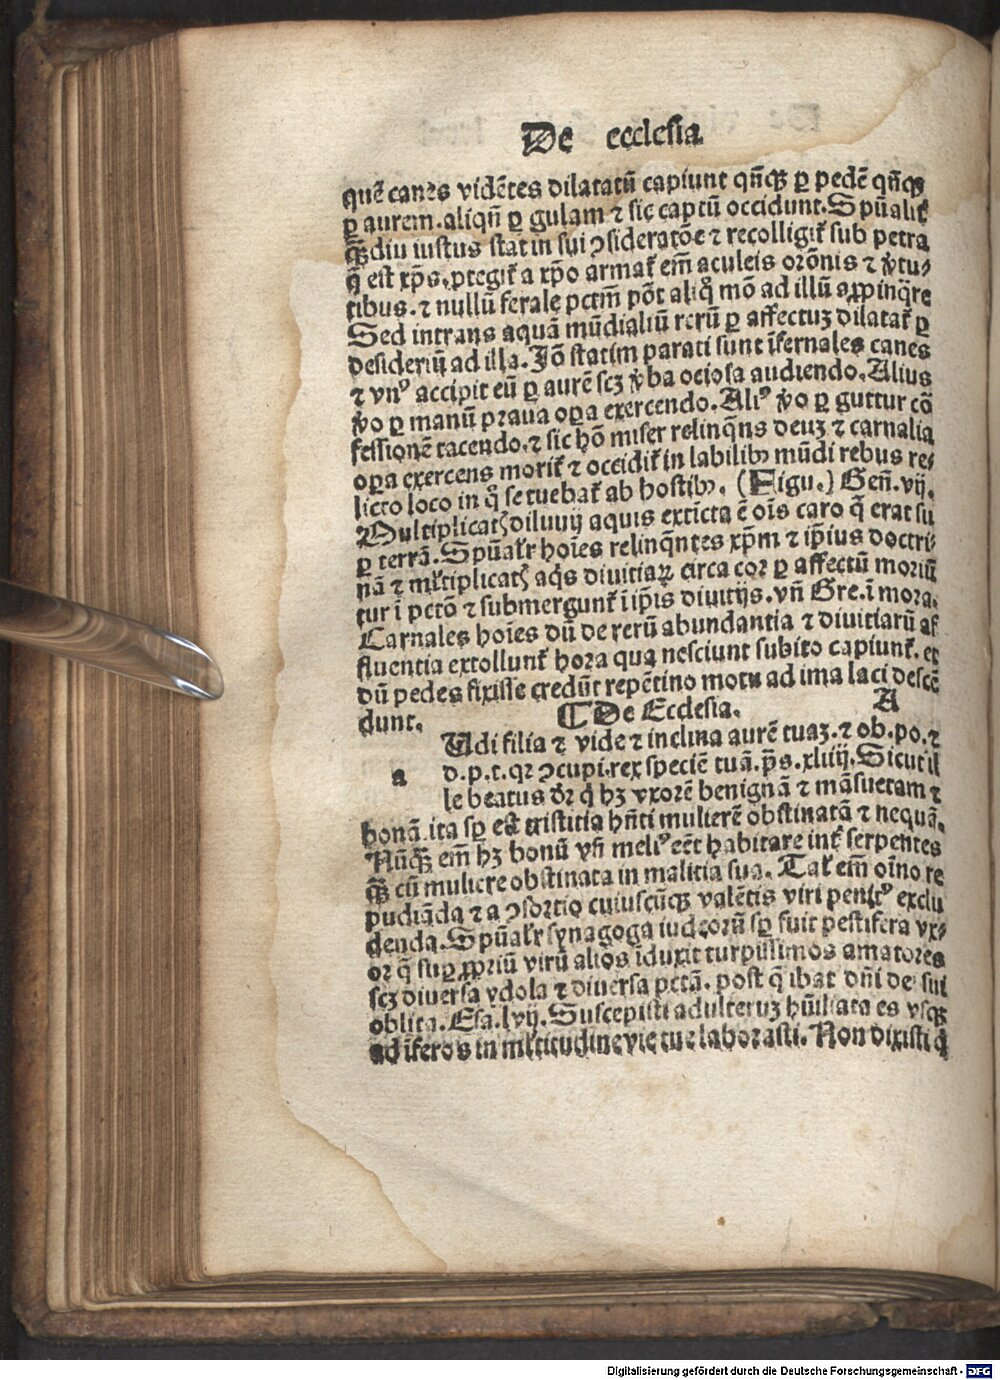 De ecclesia
quē canes vidētes dilatatū capiunt qñqꝫ ꝑ pedē qñqꝫ
ꝑ aurem. aliqñ ꝑ gulam ⁊ sic captū occidunt. Spūalit᷑
qꝫdiu iustus stat in sui ꝯsideratōe ⁊ recolligit᷑ sub petra
q̄ est xp̄s, ꝓtegit᷑ a xp̄o armat᷑ em̄ aculeis orōnis ⁊ v̓tu⸗
tibus. ⁊ nullū ferale pctm̄ pōt aliq̊ mō ad illū aꝓpinq̄re
Sed intrans aquā mūdialiū rerū ꝑ affectuꝫ dilatat᷑ ꝑ
desideriū ad illa. Jō statim parati sunt īfernales canes
⁊ vnꝰ accipit eū ꝑ aurē scꝫ v̓ba ociosa audiendo. Alius
v̓o ꝑ manū praua oꝑa exercendo. Aliꝰ v̓o ꝑ guttur cō
fessionē tacendo. ⁊ sic hō miser relinq̄ns deuꝫ ⁊ carnalia
oꝑa exercens morit᷑ ⁊ occidit᷑ in labilibꝫ mūdi rebus re⸗
licto loco in q̊ se tuebat᷑ ab hostibꝫ. (Figu.) Geñ. vij.
Multiplicatꝭ diluuij aquis extīcta ē oīs caro q̄ erat su
ꝑ terrā. Spūalr hoīes relinq̄ntes xp̄m ⁊ ip̄ius doctri⸗
nā ⁊ mltiplicatꝭ aq̄s diuitiaꝝ circa cor ꝑ affectū moriū
tur ī pctō ⁊ submergunt᷑ ī ip̄is diuitijs. vñ Gre. ī mora.
Carnales hoīes dū de rerū abundantia ⁊ diuitiarū af
fluentia extollunt᷑ hora qua nesciunt subito capiunt᷑. et
dū pedes fixisse credūt repētino motu ad ima laci descē
dunt. ¶ De Ecclesia. A
a Udi filia ⁊ vide ⁊ inclina aurē tuaꝫ. ⁊ ob. po. ⁊
d. p. t. qꝛ ꝯcupi. rex speciē tuā. p̄s. xliiij. Sicut il
le beatus d̓r q̇ hꝫ vxorē benignā ⁊ māsuetam ⁊
bonā ita sꝑ est tristitia hñti mulierē obstinatā ⁊ nequā.
Nūqꝫ em̄ hꝫ bonū vn̄ meliꝰ eēt habitare int᷑ serpentes
qꝫ cū muliere obstinata in malicia sua. Tal᷑ em̄ oīno re
pudiāda ⁊ a ꝯsortio cuiuscūqꝫ valētis viri penitꝰ exclu
denda. Spūalr synagoga iudeorū sꝑ fuit pestifera vx⸗
or q̄ suꝑ ꝓpriū virū alios īduxit turpissimos amatores
scꝫ diuersa ydola ⁊ diuersa pctā. post q̄ ibat dn̄i dei sui
oblita. Esa. lvij. Suscepisti adulteruꝫ hūiliata es vsqꝫ
ad īferos in mltitudine vie tue laborasti. Non dixisti q̊
Digitalisierung gefördert durch die Deutsche Forschungsgemeinschaft - DFG